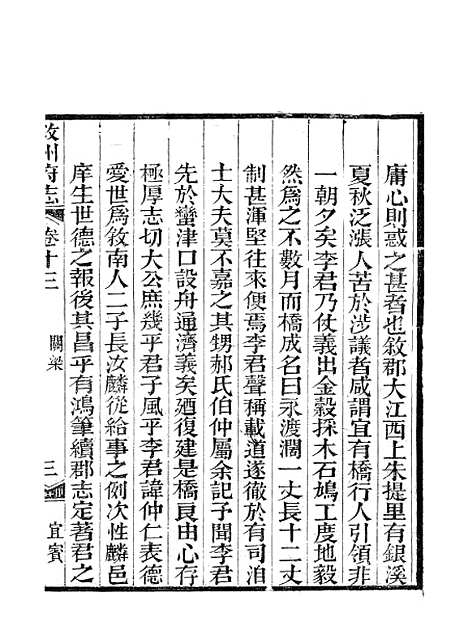 庸心則惑之甚者也敘郡大江西上朱提里有銀溪
夏秋泛漲人苦於涉議者咸謂宜有橋行人引領非
一朝夕矣李君乃仗義出金穀採木石鳩工度地毅
然爲之不數月而橋成名曰永渡濶一丈長十二丈
制甚渾堅往來便焉李君聲稱載道遂徹於有司洎
士大夫莫不嘉之其甥郝氏伯仲屬余記予聞李君
先於蠻津口設舟通濟義矣廼復建是橋良由心存
極厚志切大公庶幾乎君子風乎李君諱仲仁表德
愛世爲敘南人二子長汝麟從給事之例次性麟邑
庠生世德之報後其昌乎有鴻筆續郡志定著君之
敘州府志
卷十三
關梁
三
宜賓